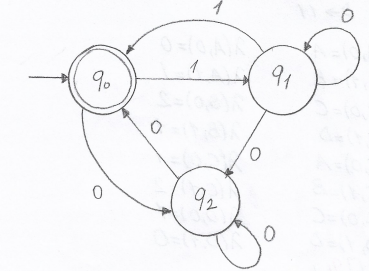 1
0
q0
1
q1
0
0
0
q2
0